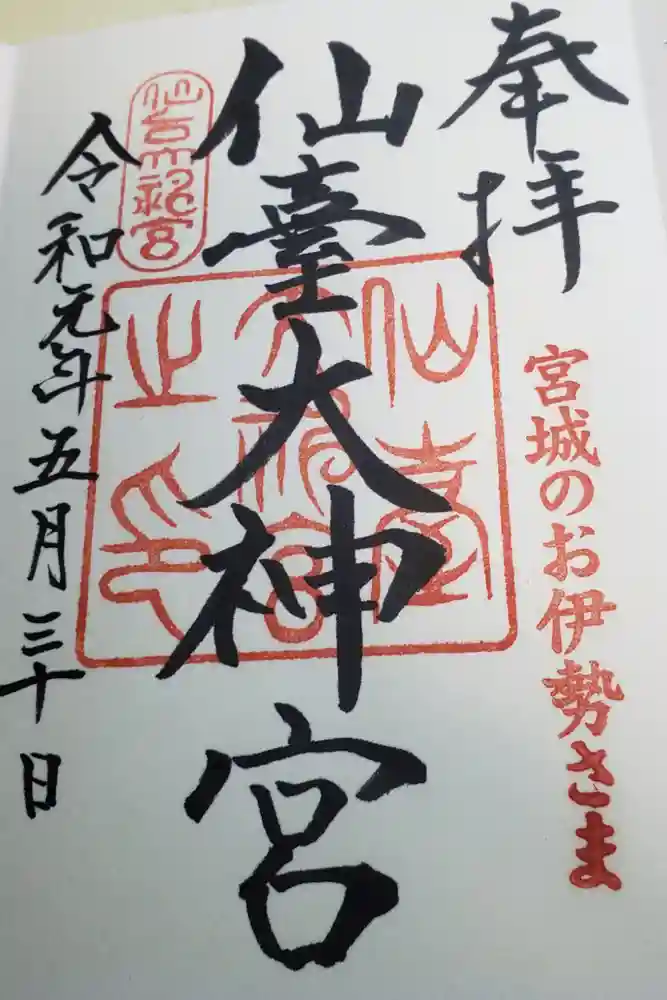 奉拝
宮城のお伊勢さま
仙臺大神宮
仙臺大神宮之印
令和元年五月三十日